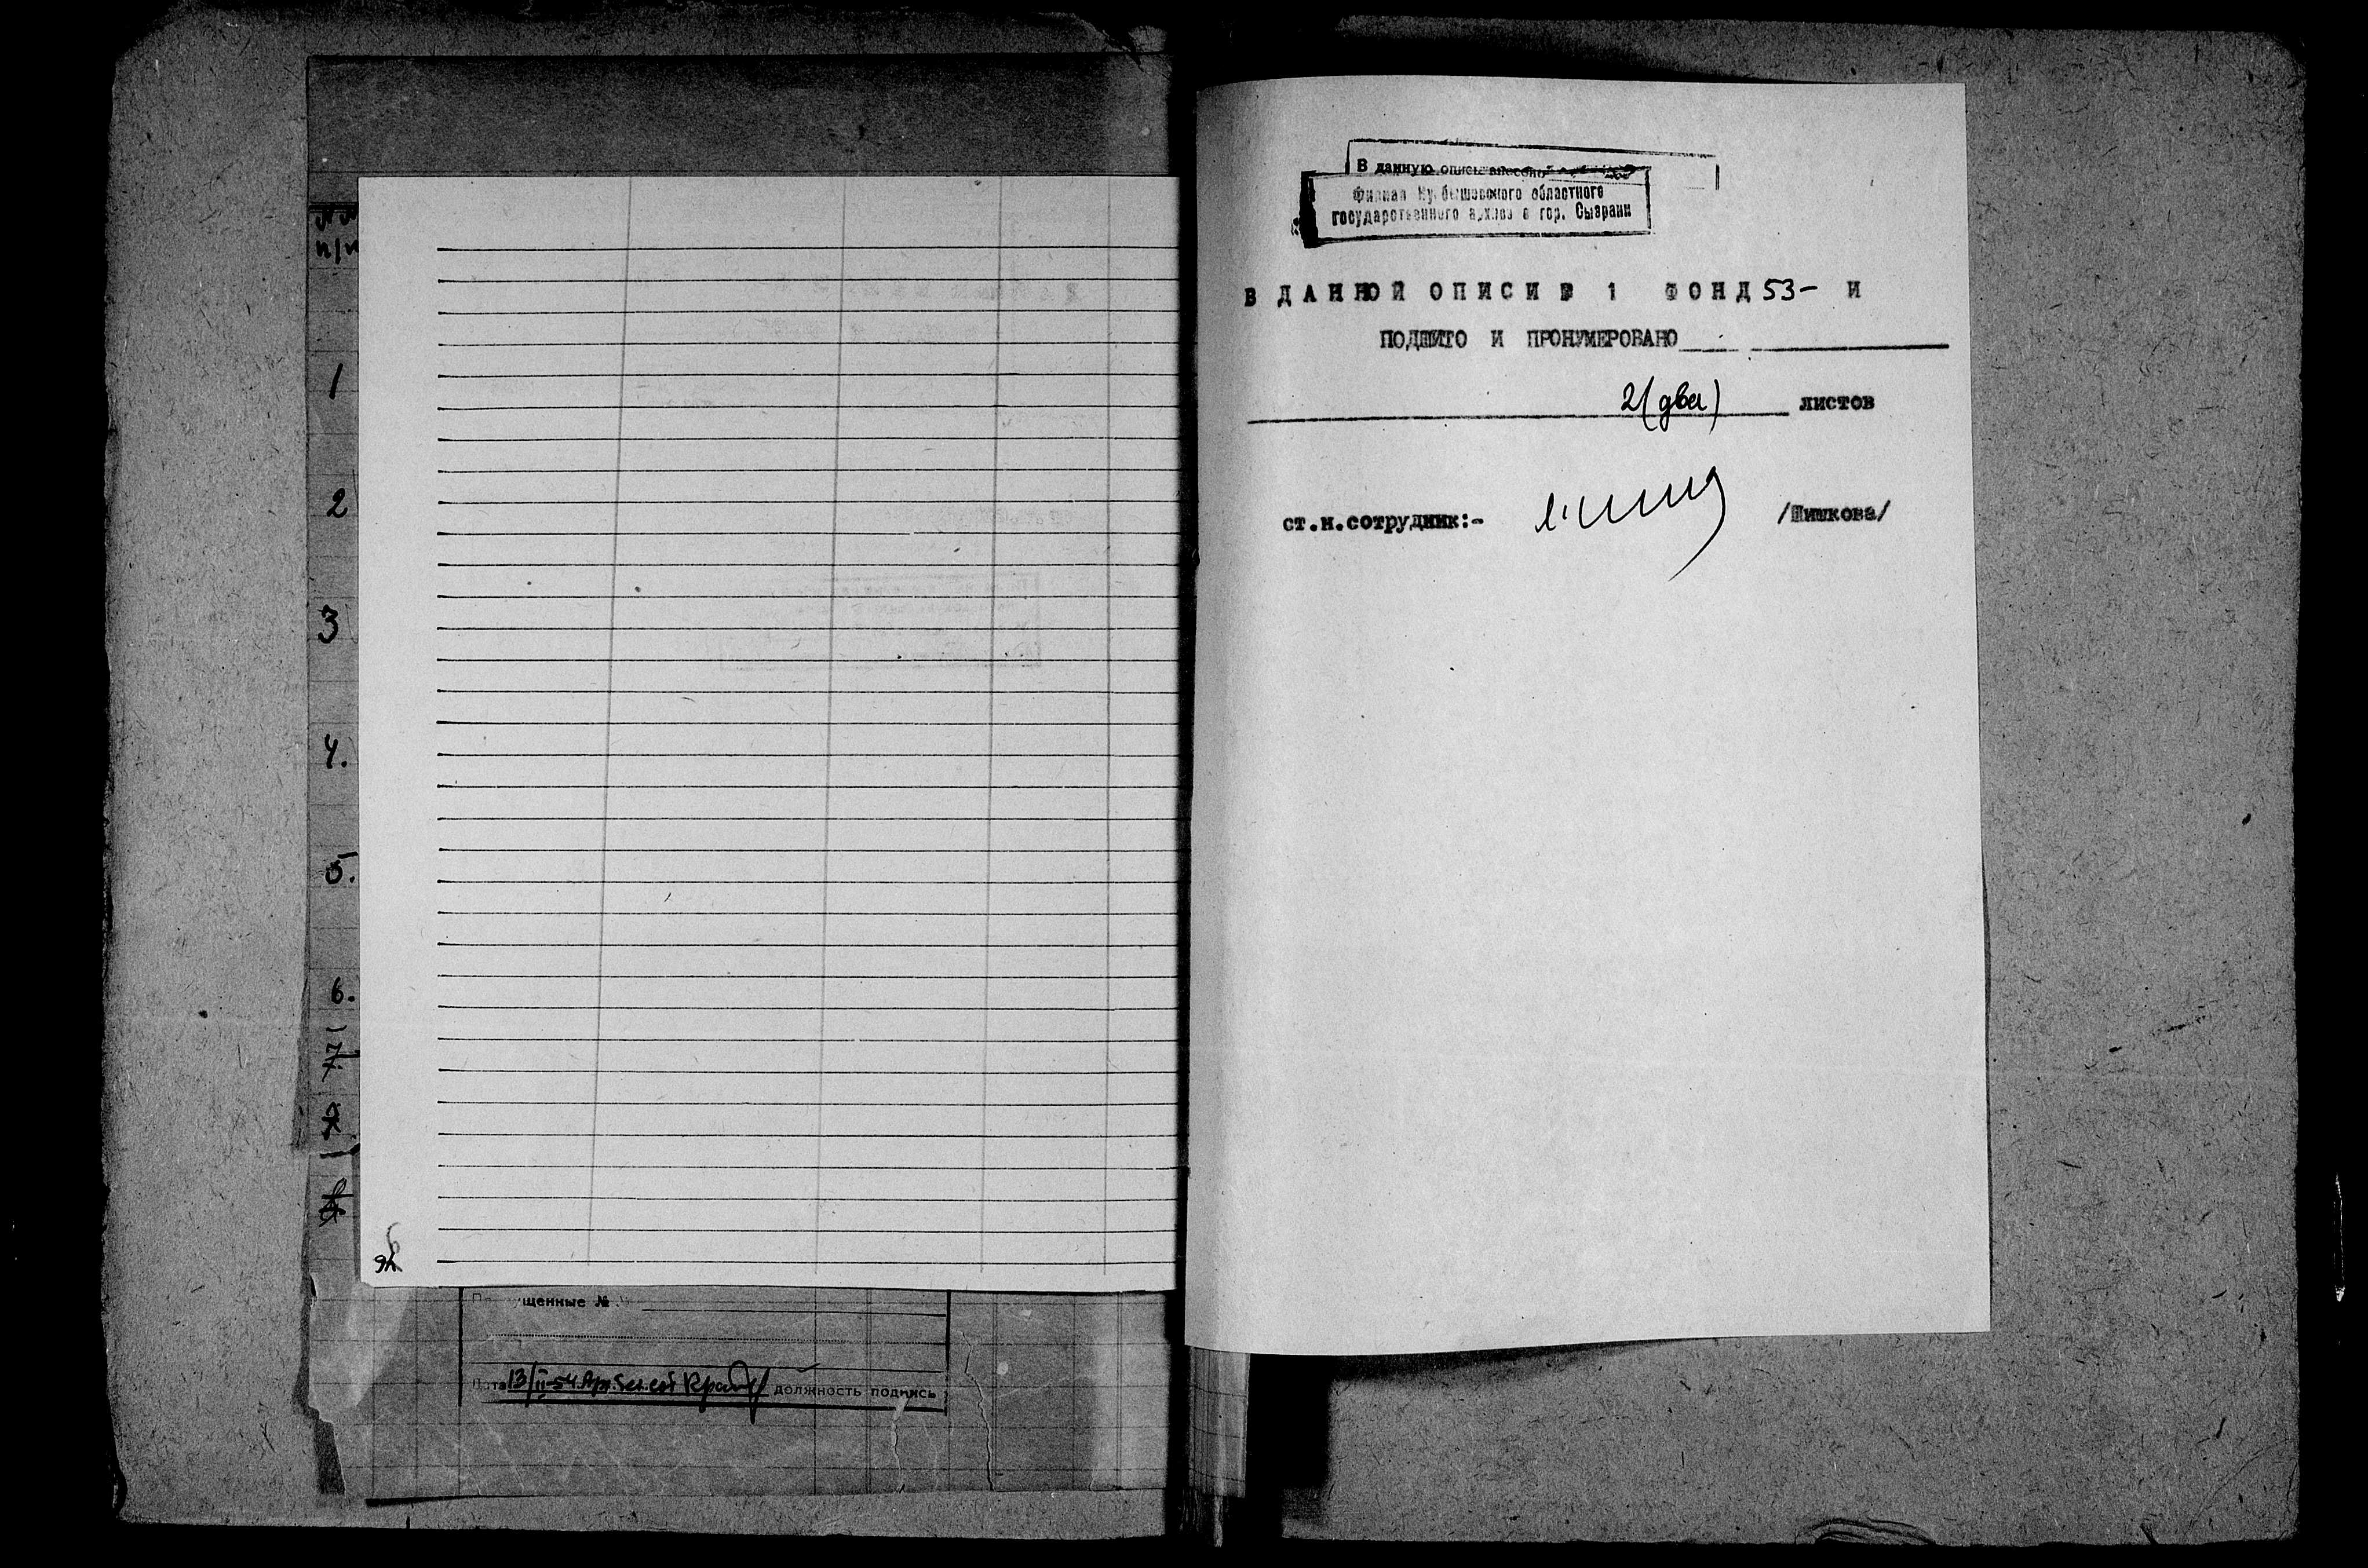 №№
п/п
1
2
3
4.
5.
6.
7
щенные №
Дата 13/II-54 должность подпись
В данную опись внесено
Филиал Куйбышевского областного
государственного архива в гор. Сызрани
В ДАННОЙ ОПИСИ № 1 ФОНД 53- И
ПОДШИТО И ПРОНУМЕРОВАНО
2(два) листов
ст.н.сотрудник:- /Шишкова/